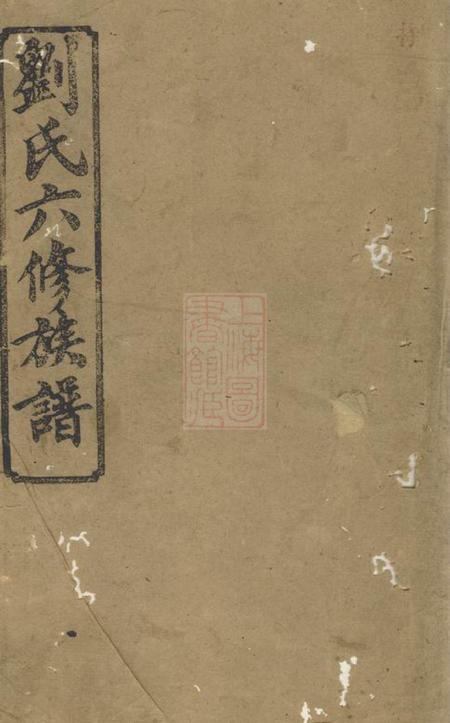 劉氏六修族譜
上海圖
書館藏